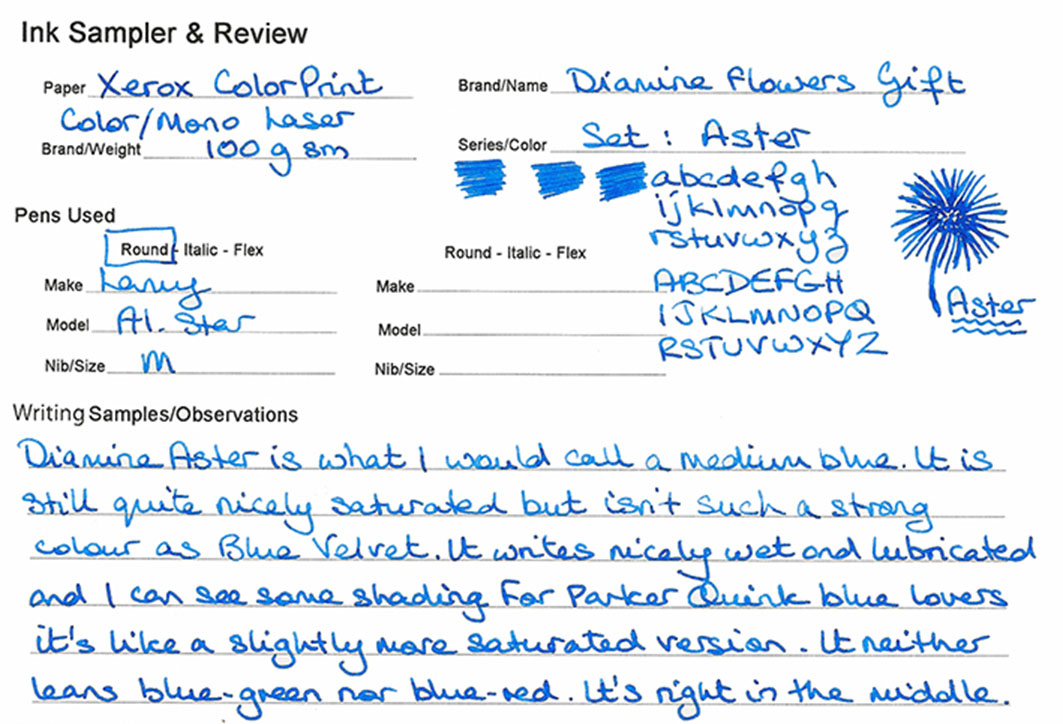 Ink Sampler & Review
Paper Xerox ColorPrint
Brand/Name Diamine Flowers Gift
Color/Mono Laser
Brand/Weight 100 gsm
Series/Color Set: Aster
abcdefgh
ijklmnopq
rstuvwxyz
ABCDEFGH
IJKLMNOPQ
RSTUVWXYZ
Aster
Pens Used
Round - Italic - Flex
Round - Italic - Flex
Make Lamy
Make
Model Al. Star
Model
Nib/Size M
Nib/Size
Writing Samples/Observations
Diamine Aster is what I would call a medium blue. It is
still quite nicely saturated but isn't such a strong
colour as Blue Velvet. It writes nicely wet and lubricated
and I can see some shading For Parker Quink blue lovers
it's like a slightly more saturated version. It neither
leans blue-green nor blue-red. It's right in the middle.